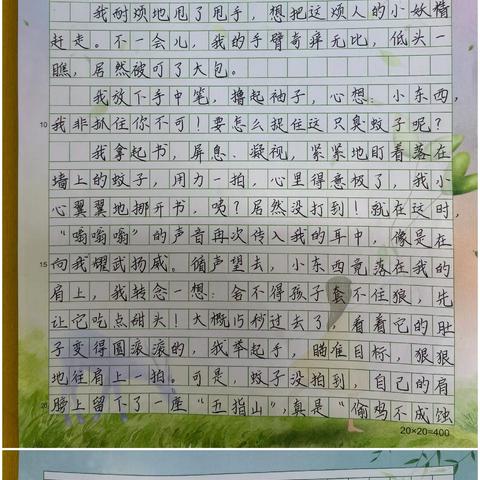 我耐烦地甩了甩手，想把这烦人的小妖精
赶走。不一会儿，我的手臂奇痒无比，低头一
瞧，居然被叮了大包。
我放下手中笔，撸起袖子，心想：小东西，
10 我非抓住你不可！要怎么捉住这只臭蚊子呢？
我拿起书，屏息、凝视，紧紧地盯着落在
墙上的蚊子，用力一拍，心里得意极了，我小
心翼翼地挪开书，咦？居然没打到！就在这时，
“嗡嗡嗡嗡”的声音再次传入我的耳中，像是在
15 向我耀武扬威。循声望去，小东西竟落在我的
肩上，我转念一想：舍不得孩子套不住狼，先
让它吃点甜头！大概15秒过去了，看着它的肚
子变得圆滚滚的，我举起手，瞄准目标，狠狠
地往肩上一拍。可是，蚊子没拍到，自己的肩
20 膀上留下了一座“五指山”，真是“偷鸡不成蚀
20×20=400